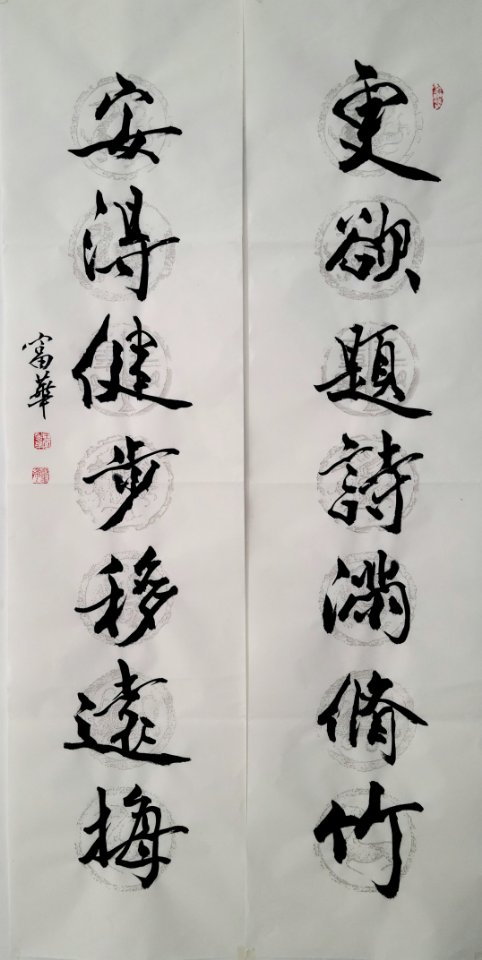 更欲題詩滿脩竹
安得健步移遠梅
富華